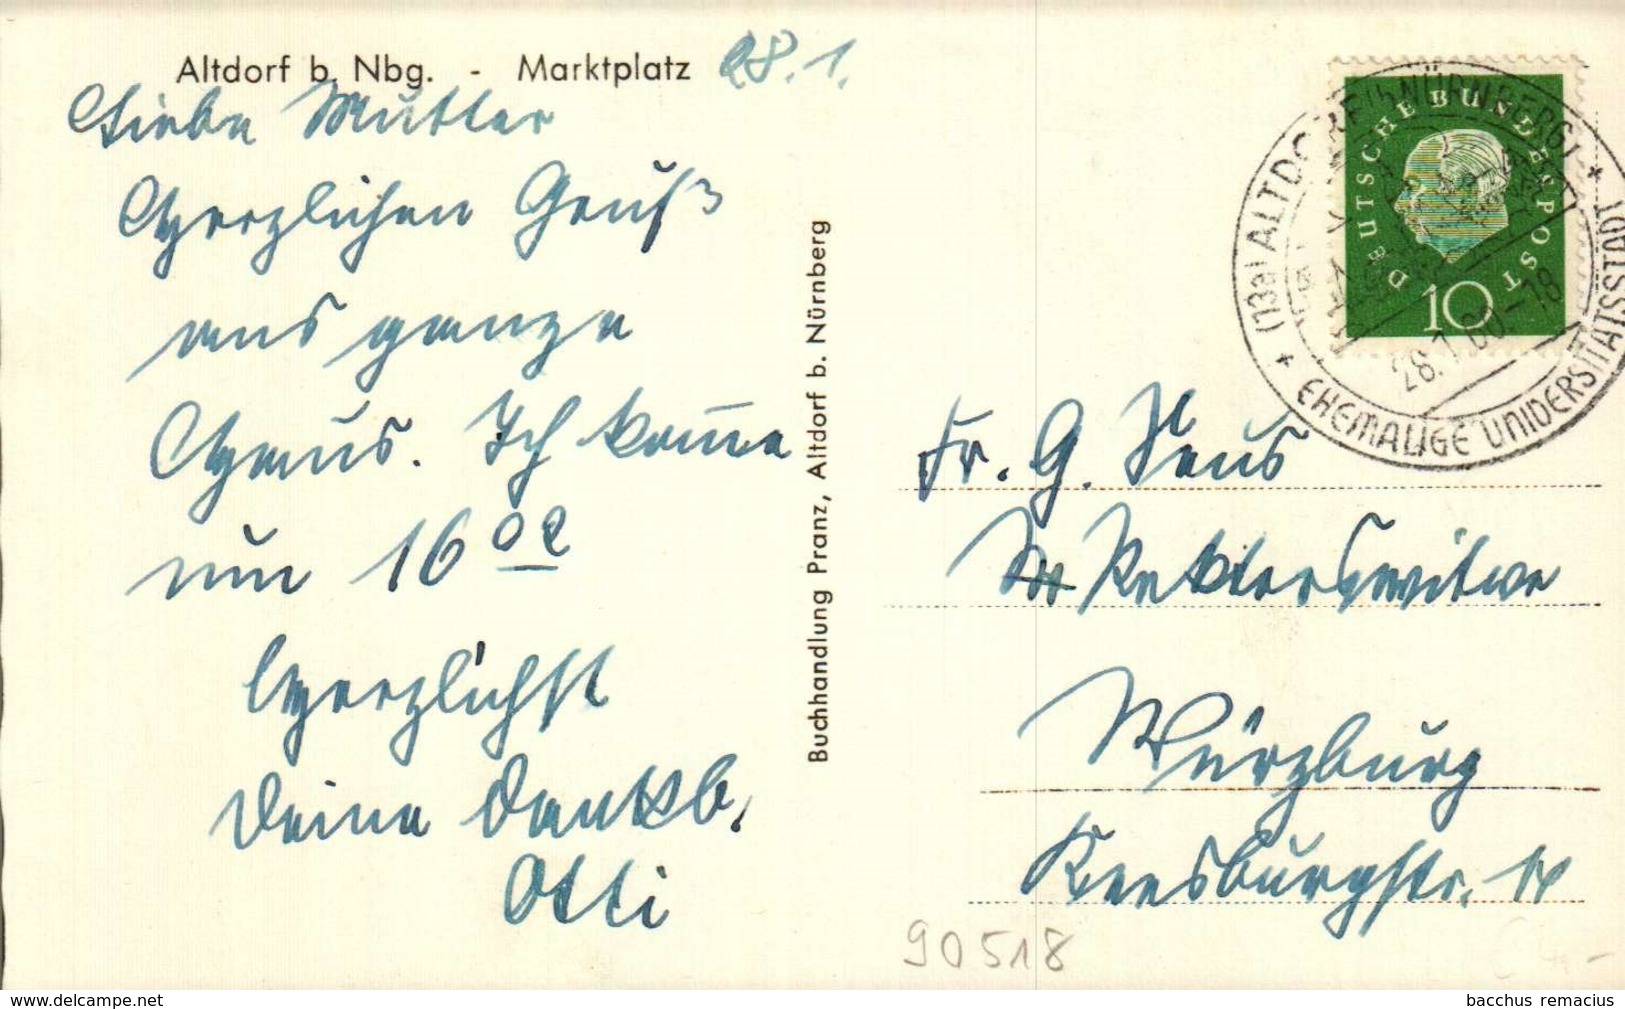 Altdorf b. Nbg. - Marktplatz
28.1.
Liebe Mutter
Herzlichen Gruß
ans ganze
Haus. Ich komme
um 16 02
Herzlichst
Deine Dankb.
Otti
Buchhandlung Pranz, Altdorf b. Nürnberg
DEUTSCHE BUNDESPOST
10
(13a) ALTDORF (b NÜRNBERG)
28.1.60-18
EHEMALIGE UNIVERSITÄTSSTADT
Fr. G.
Rektorswitwe
Würzburg
Keesburgstr.
90518
www.delcampe.net
bacchus remacius